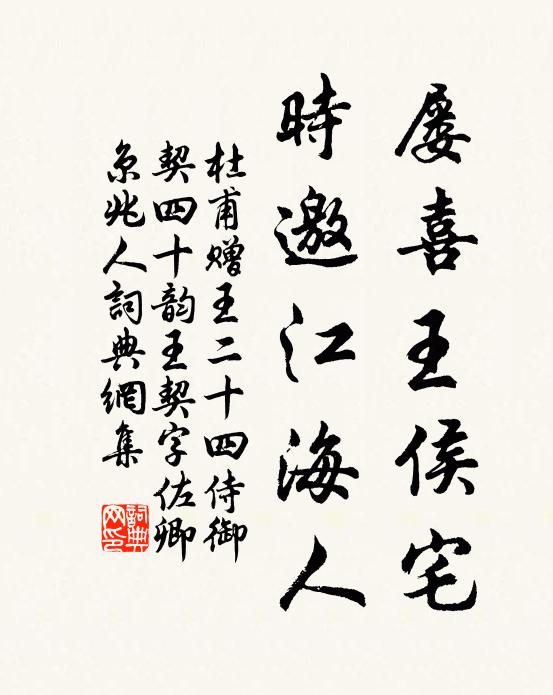 屡喜王侯宅
時邀江海人
杜甫赠王二十四侍御
契四十韵王契字佐卿
京兆人詞典網集
詞典
网印